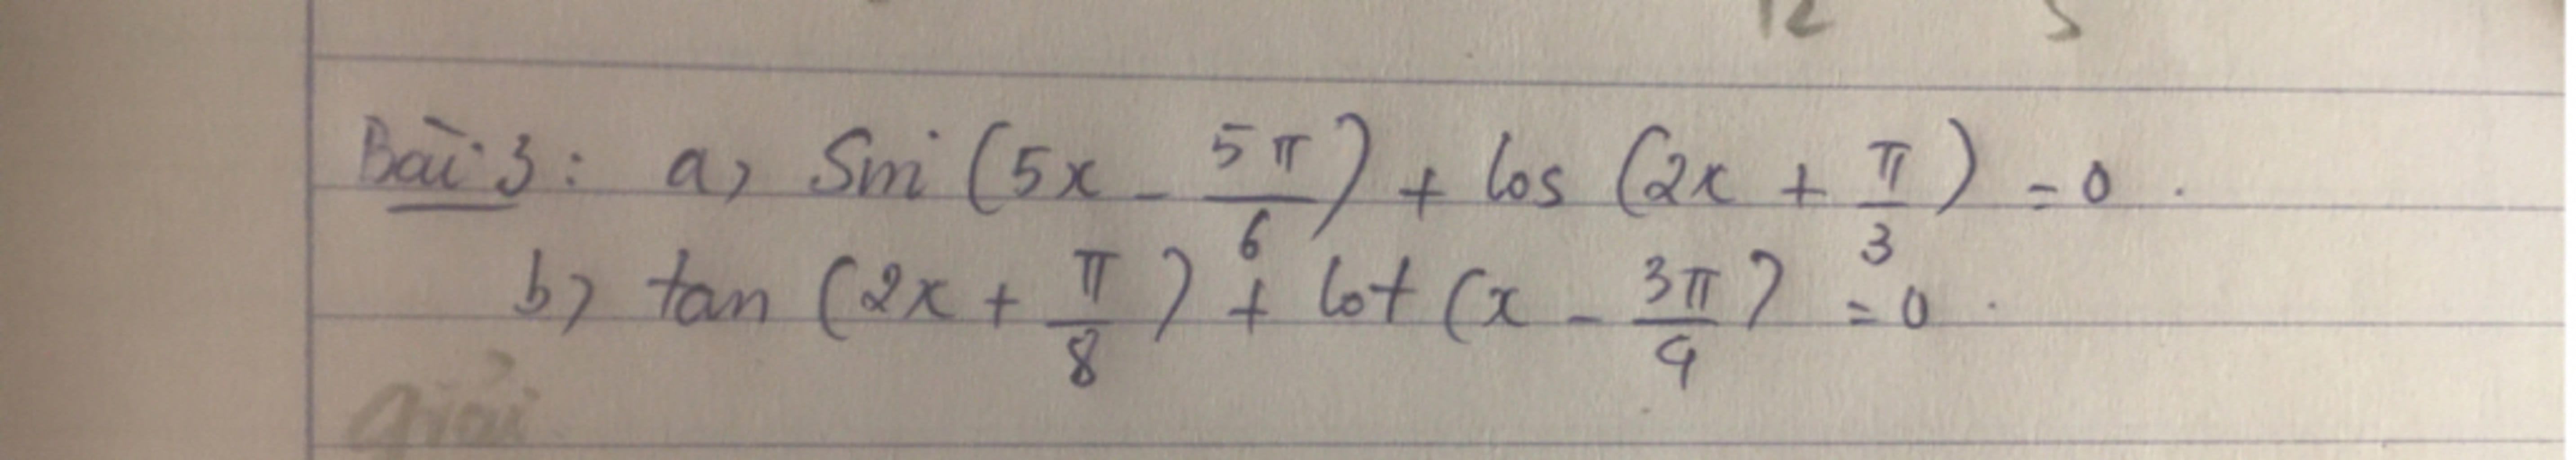 12 5
Bài 3: a) Sin (5x - 5π/6) + cos (2x + π/3) = 0.
b) tan (2x + π/8) + cot (x - 3π/4) = 0.
Giải